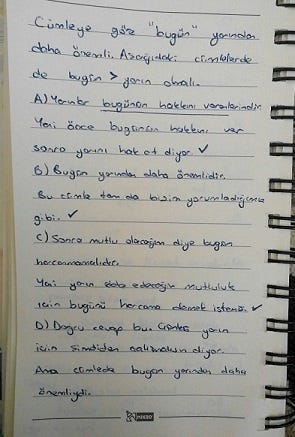 Cümleye göz "bugün" yarından
daha önemli. Aşağıdaki cümlelerde
de bugün > yarın olmalı.
A) Yarınlar bugünün hakkını verenlerindir.
Yani önce bugünün hakkını ver
sonra yarını hak et diyor. ✓
B) Bugün yarından daha önemlidir.
Bu cümle tam da bizim yorumladığımız
gibi. ✓
C) Sonra mutlu olacağım diye bugün
harcanmamalıdır.
Yani yarın elde edeceğin mutluluk
için bugünü harcama demek istemiş. ✓
D) Doğru cevap bu. Çünkü yarın
için şimdiden çalışmalısın diyor.
Ana cümlede bugün yarından daha
önemliydi.